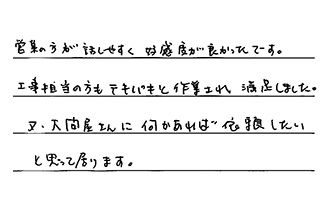 営業の方が話しやすく 好感度が良かったです。
工事担当の方も テキパキと作業され 満足しました。
又、大問屋さんに 何かあれば 依頼したい
と思って居ります。